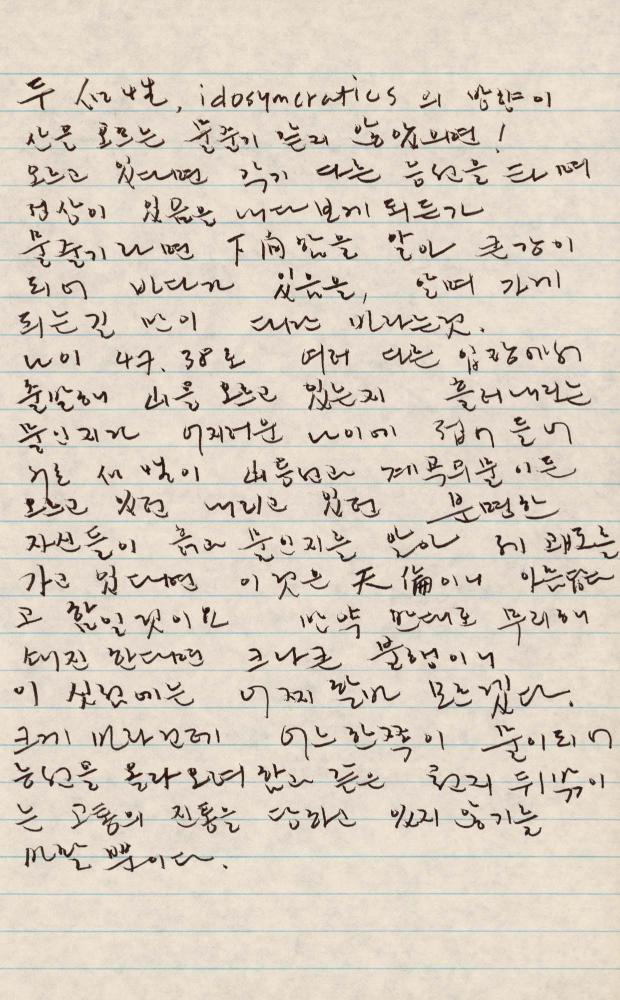 두 성, idosyncratics 의 방향이
산을 오르는 물줄기 같지 않았으면!
오르고 있다면 각기 다른 능선을 타며
정상이 있음을 내다보게 되든가
물줄기라면 下向함을 알아 큰강이
되어 바다가 있음을, 알며 가게
되는길 만이 바라는것.
나이 47. 38로 여러 다른 입장에서
출발해 山을 오르고 있는지 흘러내리는
물인지가 어지러운 나이에 접어들어
서로 山등성과 계곡의물이든
오르고 있던 내리고 있던 분명한
자신들이 흙과 물인지를 알아 궤도를
가고 있다면 이것은 天倫이니 아름답다
고 할일것이오 만약 반대로 무리해
한다면 크나큰 불행이니
이 에는 어찌 할바 모르겠다.
크게 바라건데 어느한쪽이 물이되어
능선을 올라오려함과 같은 뒤바뀌
는 고통의 진통을 당하고 있지 않기를
바랄 뿐이다.